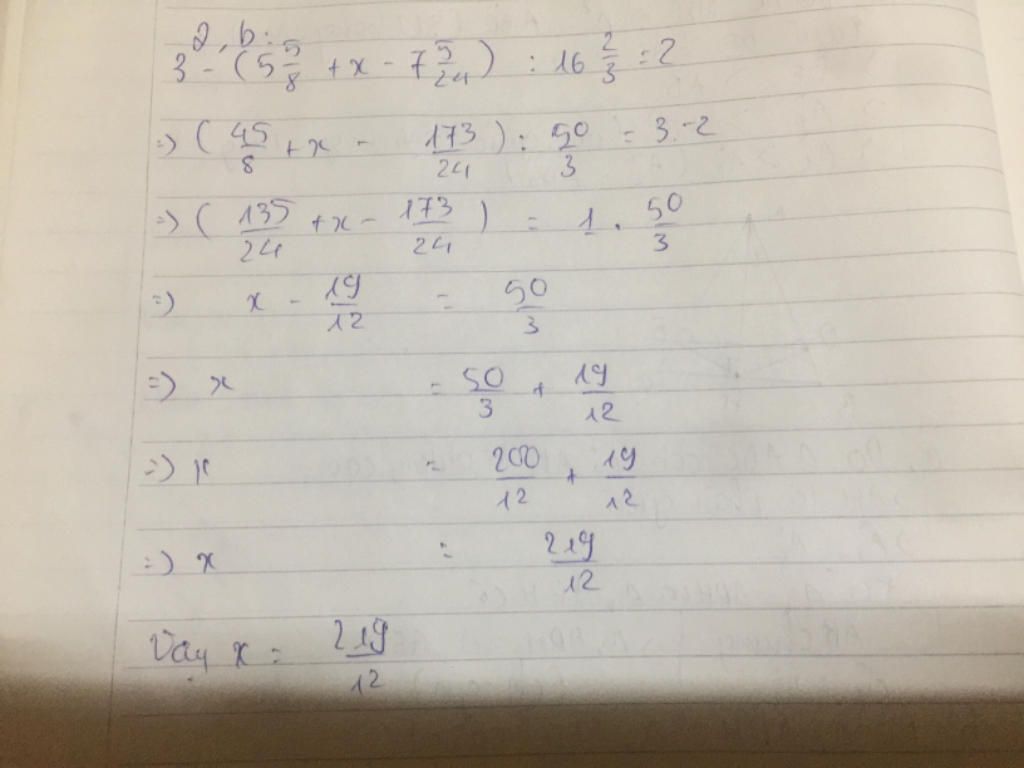 2, b:
3 - (5 5/8 + x - 7 5/24) : 16 2/3 = 2
=> (45/8 + x - 173/24) : 50/3 = 3 - 2
=> (135/24 + x - 173/24) = 1 . 50/3
=> x - 19/12 = 50/3
=> x = 50/3 + 19/12
=> x = 200/12 + 19/12
=> x = 219/12
Vậy x = 219/12